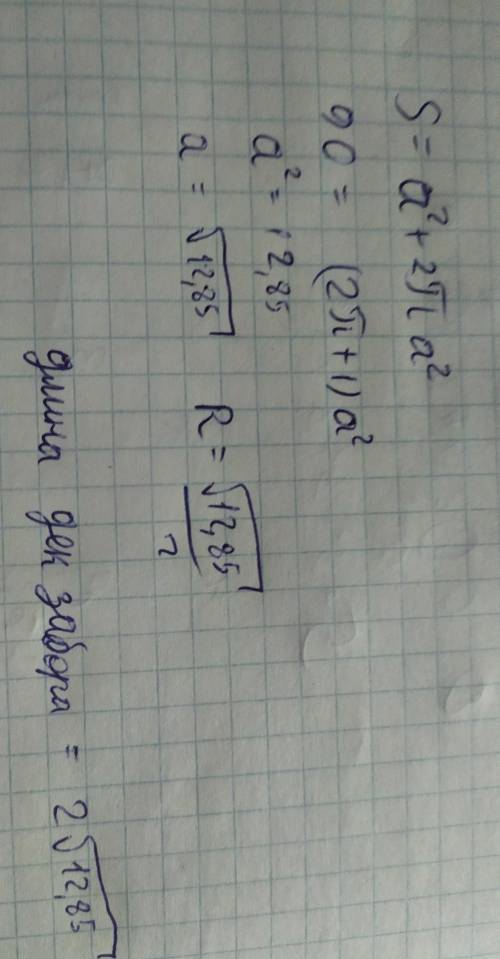 S = a² + 2π a²
90 = (2π + 1) a²
a² = 12,85
a = √12,85 R = √12,85 / 2
длина дек забора = 2√12,85